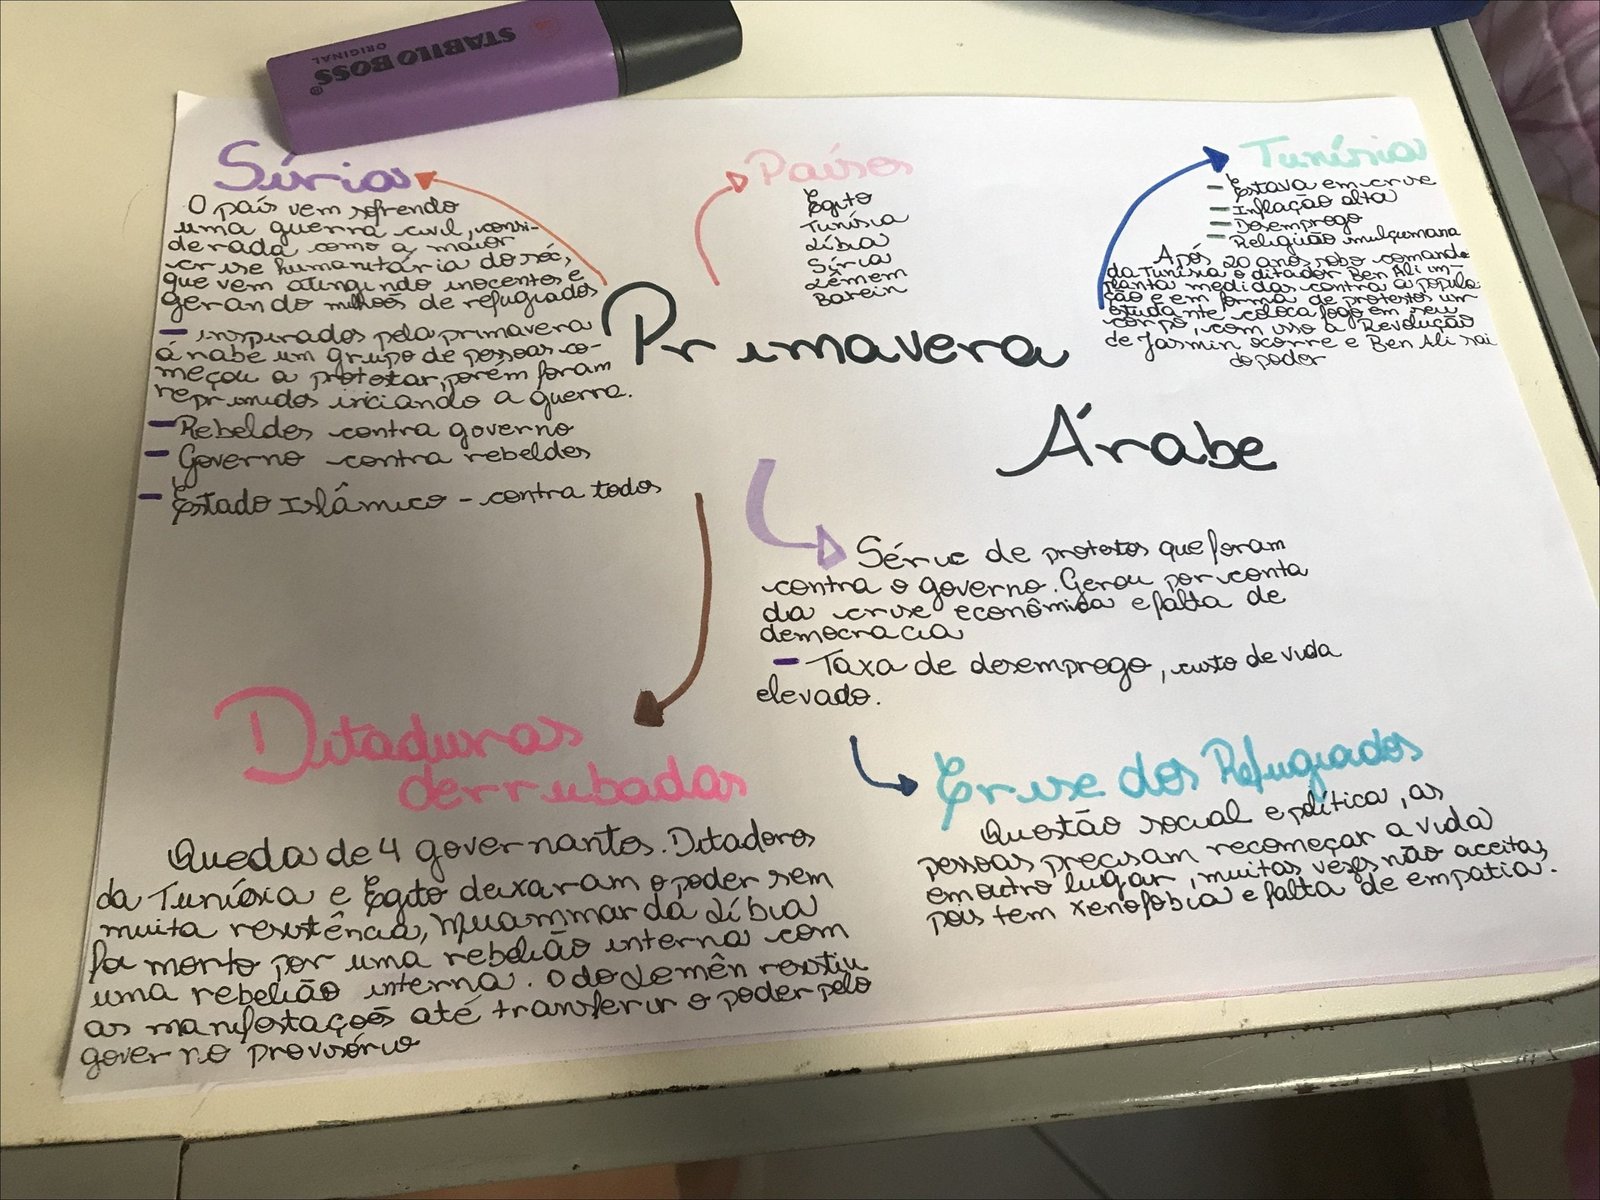 STABILO BOSS
ORIGINAL
Síria
O país vem sofrendo
uma guerra civil, consi-
derada como a maior
crise humanitária do séc,
que vem atingindo inocentes e
gerando milhões de refugiados
- inspirados pela primavera
árabe um grupo de pessoas co-
meçou a protestar, porém foram
reprimidos iniciando a guerra.
- Rebeldes contra governo
- Governo contra rebeldes
- Estado Islâmico - contra todos
Países
Egito
Tunísia
Líbia
Síria
Iêmem
Barein
Tunísia
- Estava em crise
- Inflação alta
- Desemprego
- Religião mulçumana
Após 20 anos sobo comando
da Tunísia o ditador Ben Ali im-
planta medidas contra a popula
ção e em forma de protestos um
estudante coloca fogo em seu
corpo, com isso a Revolução
de Jasmin ocorre e Ben Ali sai
do poder
Primavera
Árabe
Série de protestos que foram
contra o governo. Gerou por conta
da crise econômica e falta de
democracia
- Taxa de desemprego, custo de vida
elevado.
Ditaduras
derrubadas
Queda de 4 governantes. Ditadores
da Tunísia e Egito deixaram o poder sem
muita resistência, Muammar da Líbia
foi morto por uma rebelião interna com
uma rebelião interna. O do Iemên resistiu
as manifestações até transferir o poder pelo
governo provisório
Crise dos Refugiados
Questão social e política, as
pessoas precisam recomeçar a vida
em outro lugar, muitas vezes não aceitas,
pois tem xenofobia e falta de empatia.